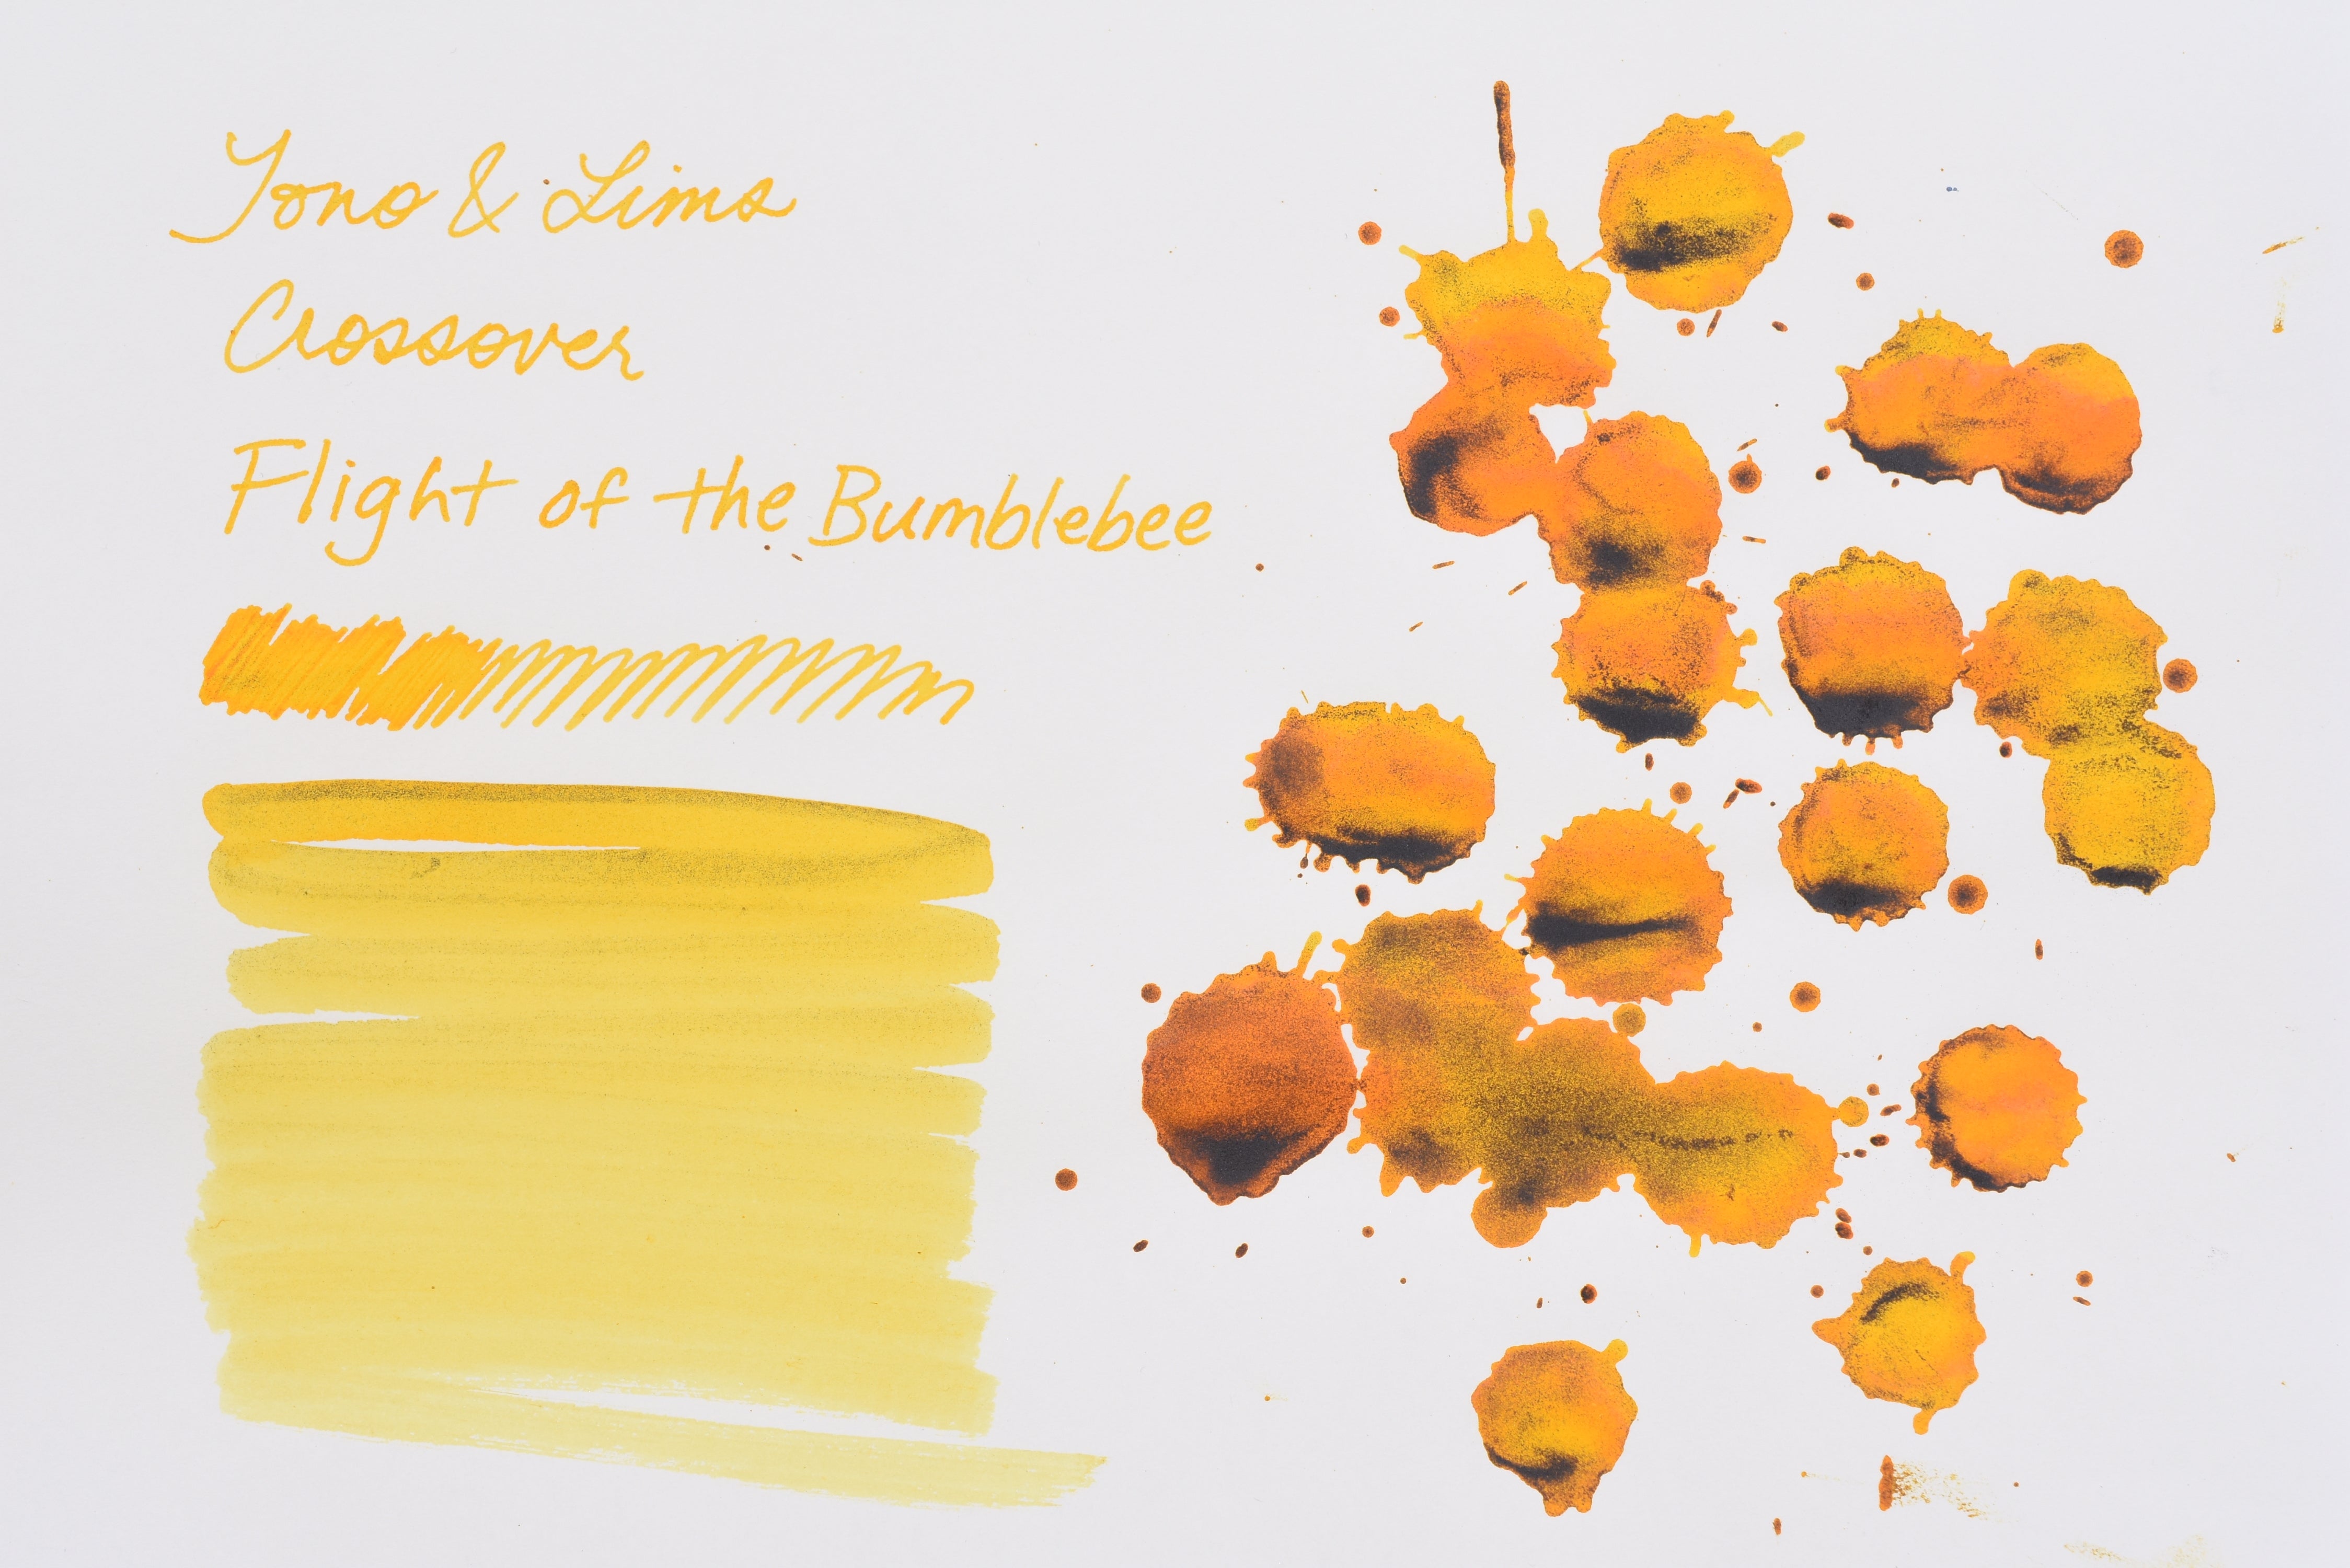 Tono & Lims
Crossover
Flight of the Bumblebee